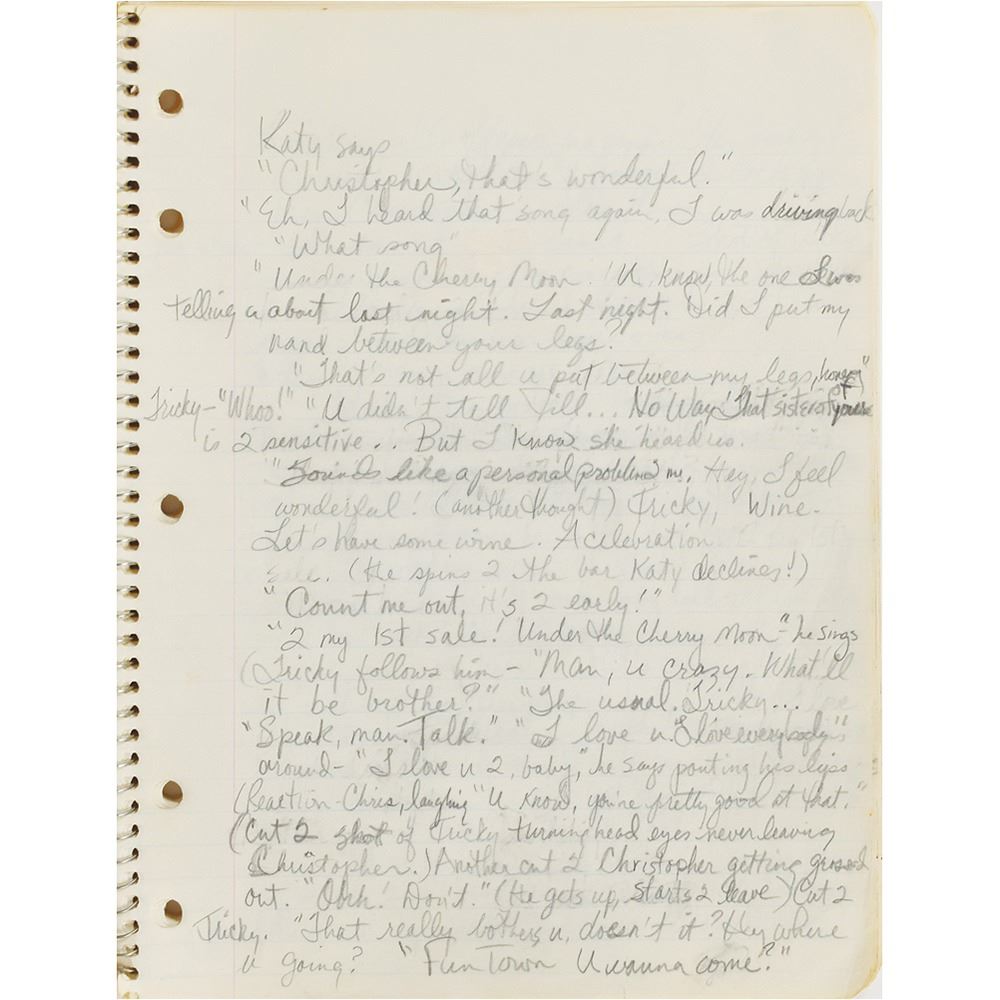 Katy says
"Christopher, that's wonderful."
"Eh, I heard that song again. I was driving back
"What song"
"Under the Cherry Moon. U know, the one I was
telling u about last night. Last night. Did I put my
hand between your legs?
"That's not all u put between my legs, honey"
Tricky - "Whoo!" "U didn't tell Jill... No Way! That sister of yours
is 2 sensitive.. But I know she heard us.
"Sounds like a personal problem 2 me. Hey, I feel
wonderful! (another thought) Tricky, Wine.
Let's have some wine. A celebration
(He spins 2 the bar Katy declines!)
"Count me out, it's 2 early!"
"2 my 1st sale! Under the Cherry Moon-" he sings
(Tricky follows him - "Man, u crazy. What'll
it be brother?" "The usual. Tricky...
"Speak, man. Talk." "I love u. "I love everybody"
around - "I love u 2, baby," he says pouting his lips
(Reaction - Chris, laughing "U know, you're pretty good at that."
(Cut 2 shot of Tricky turning head eyes never leaving
Christopher.) Another cut 2 Christopher getting grossed
out. "Ohh! Don't." (He gets up, starts 2 leave) Cut 2
Tricky. "That really bothers u, doesn't it? Hey where
u going? "Fun Town U wanna come?"